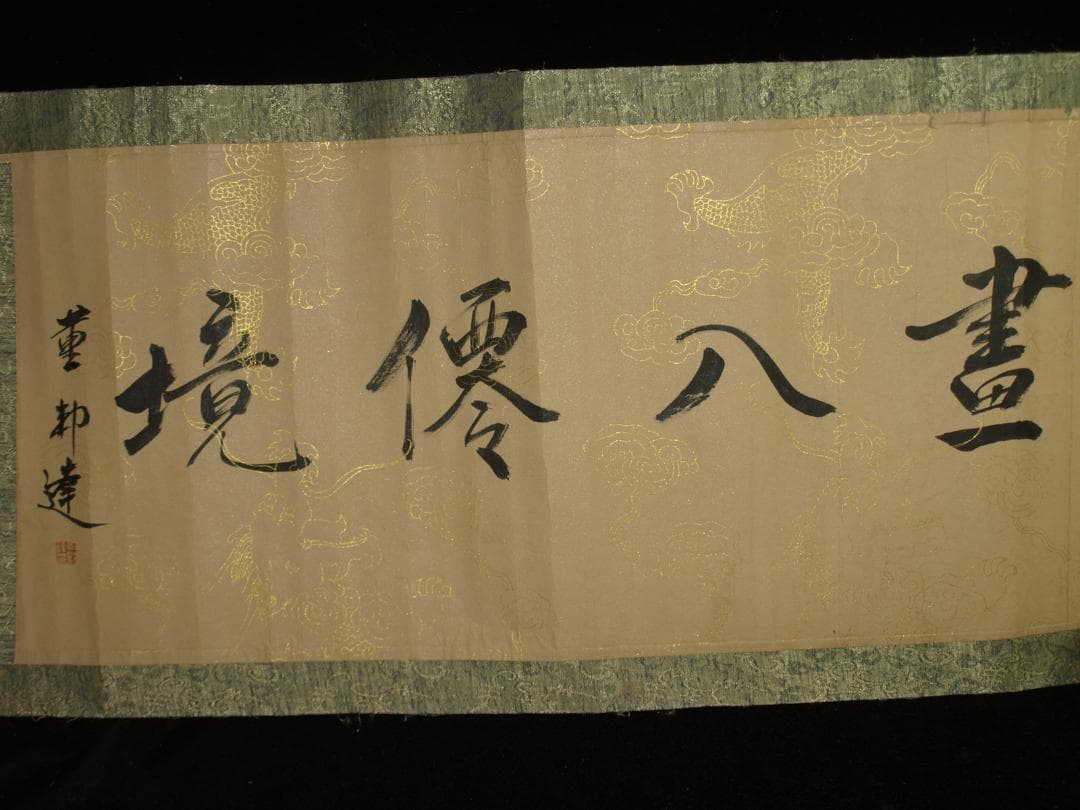 畫入僊境
董邦達